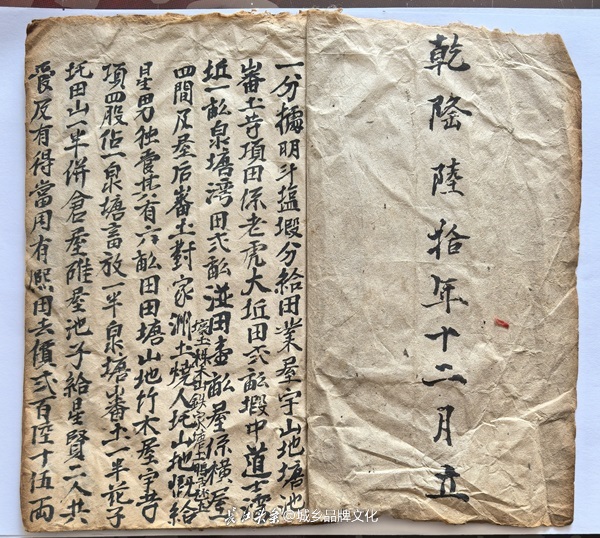 乾隆陸拾年十二月立
一分據明斗塩塅分給田業屋宇山地塘池
畨土等項田係老虎大坵田弍畝塅中道士湾
坵一畝泉塘湾田弍畝湴田壹畝屋係橫屋
四間及屋后畨土對家洲土燒人坵山地慨給
星男独管其有六畝田田塘山地竹木屋宇等
項四股佔一泉塘畜放一半泉塘畨土一半花子
坵田山一半併倉屋碓屋池子給星賢二人共
管及有得當用有熙田去價弍百陸十伍両
@城乡品牌文化